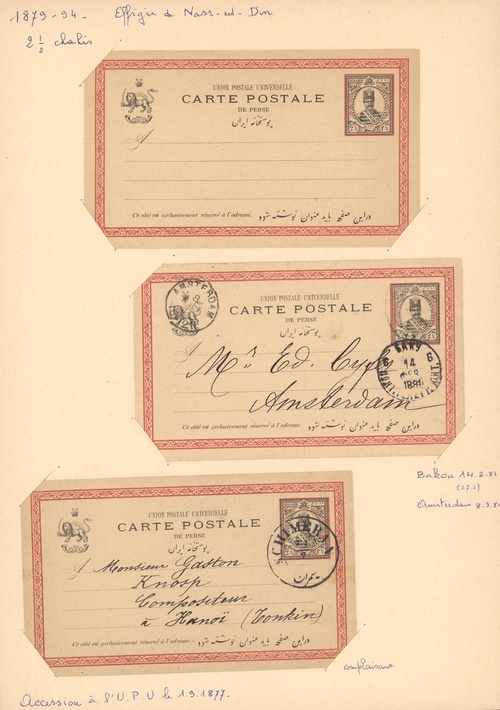 1879-94. Effigie de Nasr-ed-Din
2 1/2 chahis
UNION POSTALE UNIVERSELLE
CARTE POSTALE
DE PERSE
پوستخانه ایران
A
Ce côté est exclusivement réservé à l'adresse.
در این صفحه باید عنوان نوشته شود
AMSTERDAM
UNION POSTALE UNIVERSELLE
CARTE POSTALE
DE PERSE
پوستخانه ایران
БАКУ
6 14 6
ФЕВ.
1881
Mr Ed. Cypl
Amsterdam
Ce côté est exclusivement réservé à l'adresse.
در این صفحه باید عنوان نوشته شود
Bakou 14.2.81
(27.2)
Amsterdam 8.3.81
UNION POSTALE UNIVERSELLE
CARTE POSTALE
DE PERSE
پوستخانه ایران
A
CHIMERAN
شمران
Monsieur Gaston
Knosp
Compositeur
à Hanoï (Tonkin)
Ce côté est exclusivement réservé à l'adresse.
در این صفحه باید عنوان نوشته شود
complaisance
Accession à l'U.P.U le 1.9.1877.